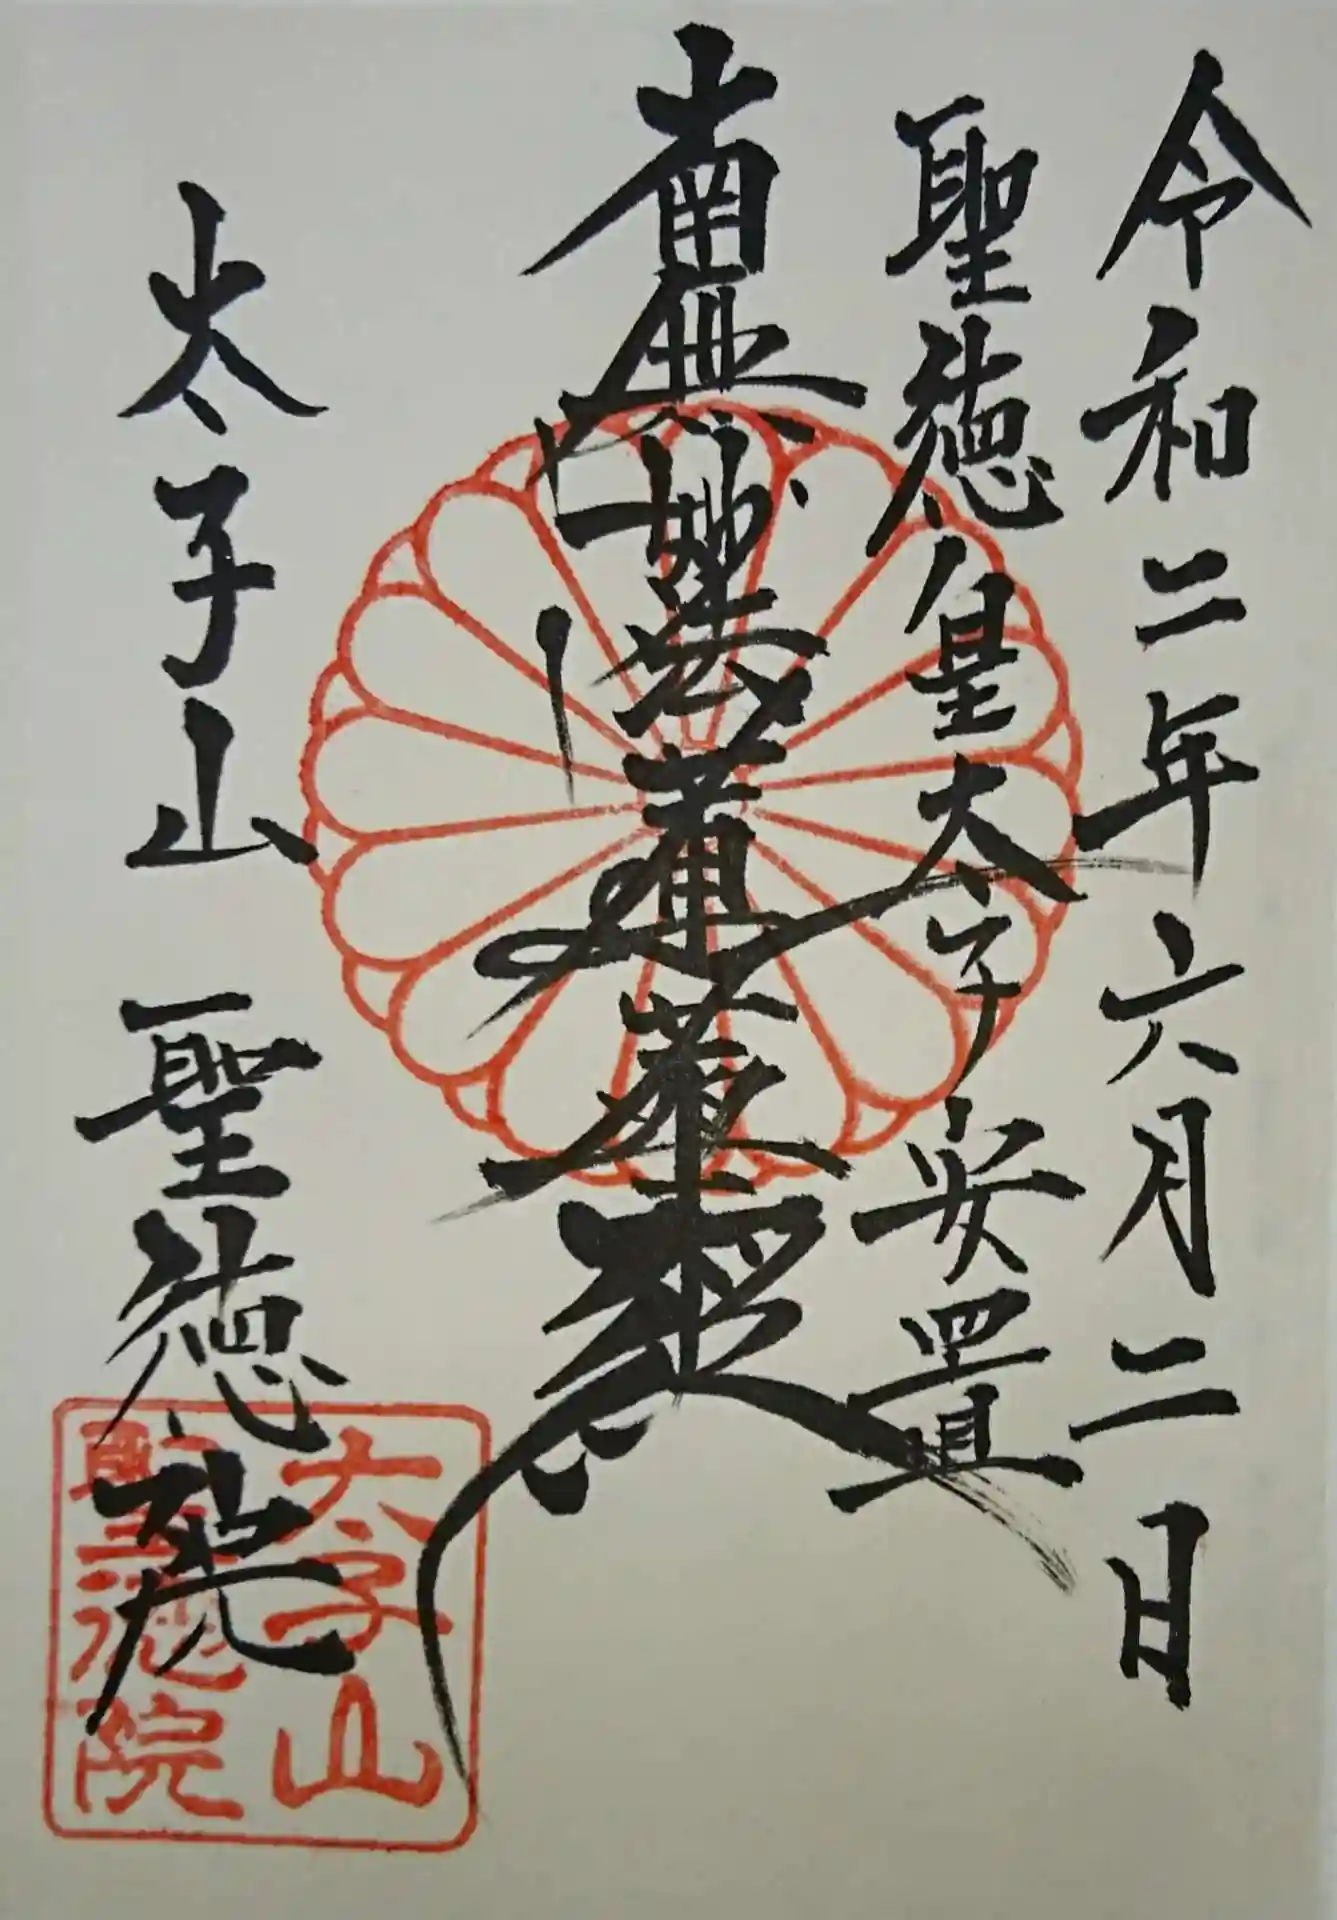 令和二年六月二日
聖徳皇太子 安置
南無妙法蓮華經
太子山 聖徳院
太子山
聖徳院